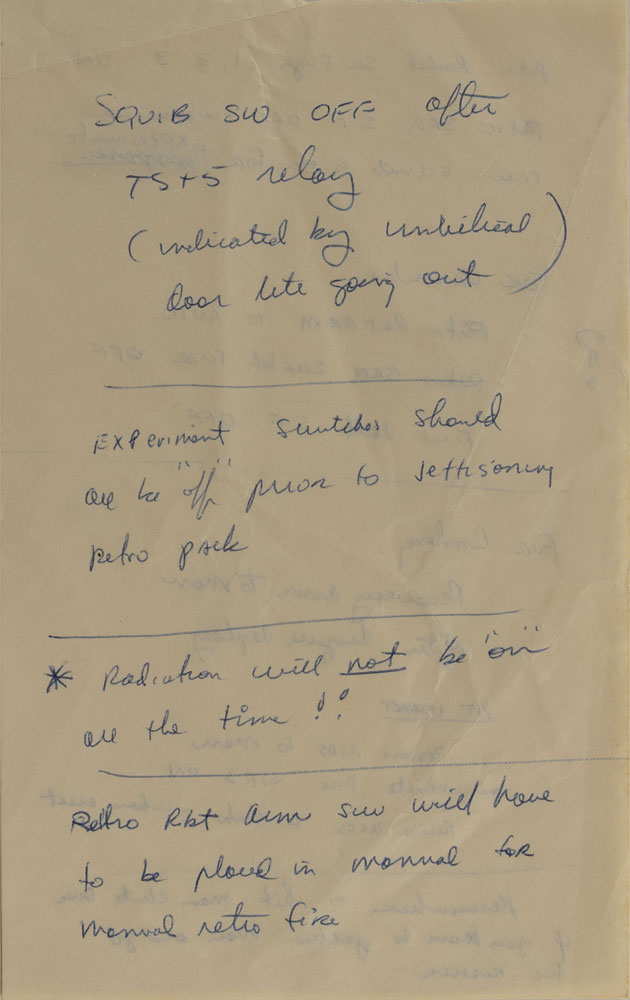 SQUIB SW OFF after
TS+5 relay
(indicated by umbilical
door lite going out)
EXPeriment switches should
all be "off" prior to jettisoning
retro pack
* Radiation will not be "on"
all the time !!
Retro Rkt arm sw will have
to be placed in manual for
manual retro fire